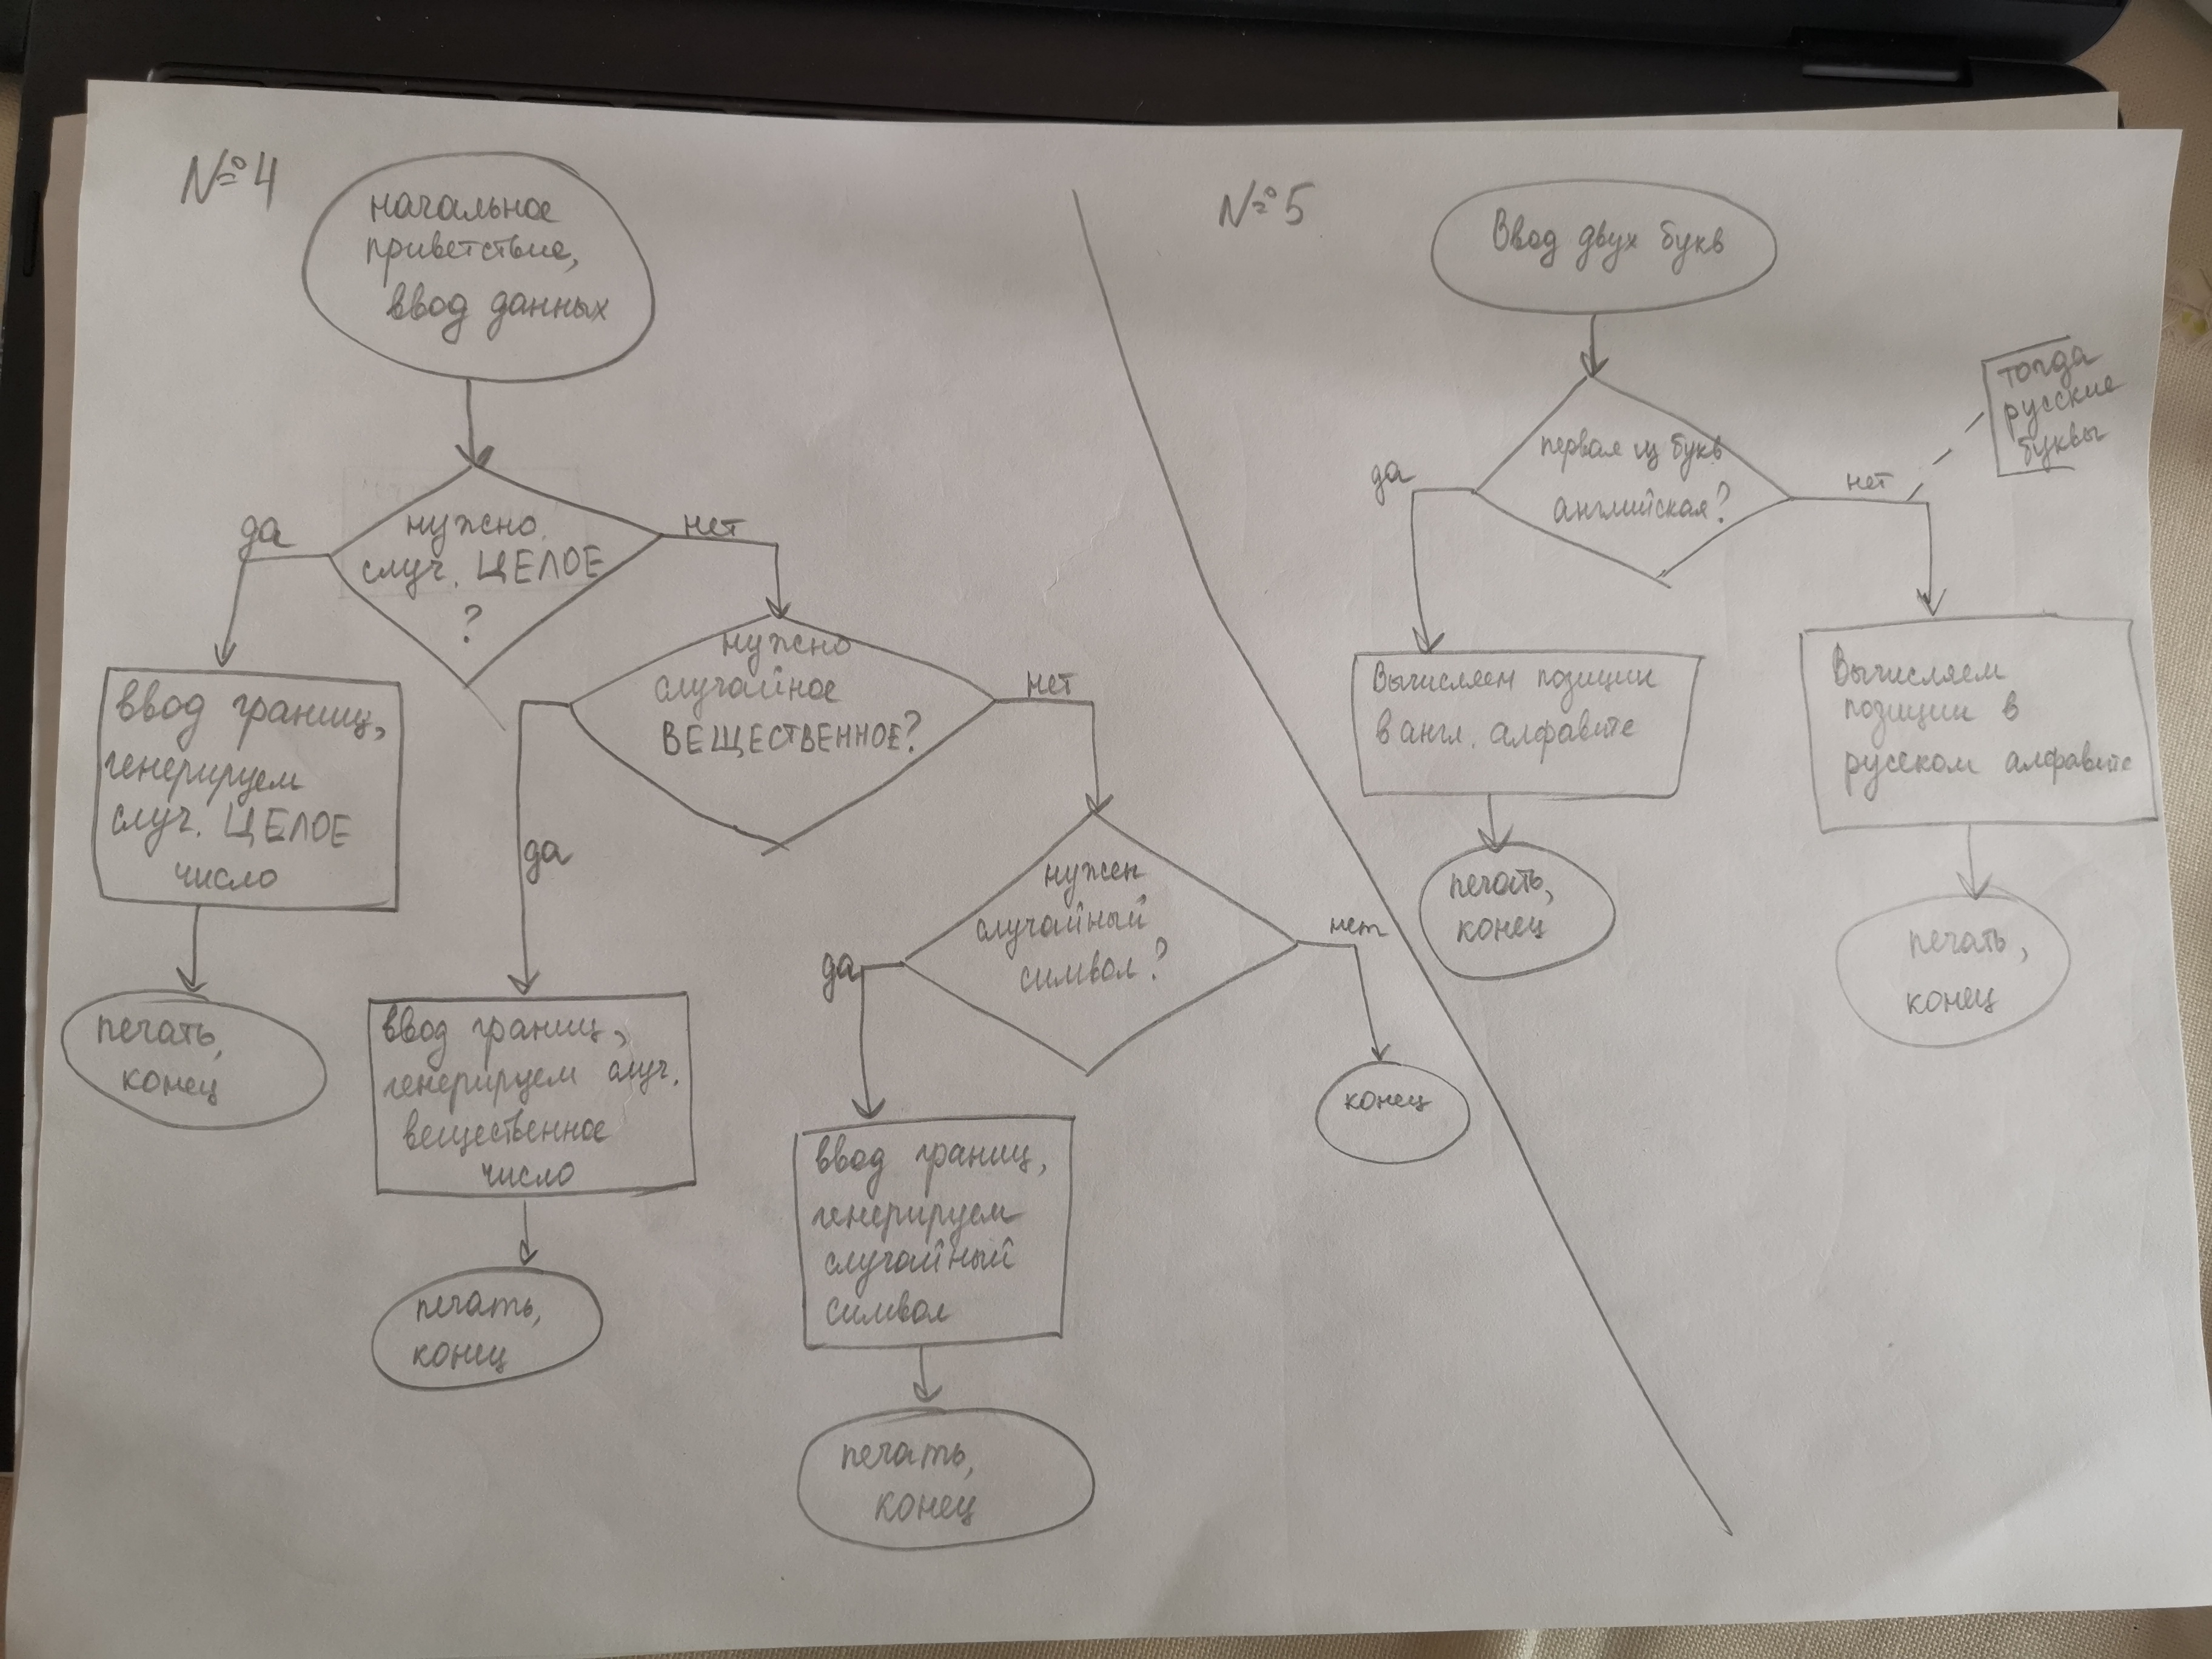 №4
начальное
приветствие,
ввод данных
нужно
случ. ЦЕЛОЕ
?
да
нет
ввод границ,
генерируем
случ. ЦЕЛОЕ
число
печать,
конец
нужно
случайное
ВЕЩЕСТВЕННОЕ?
да
нет
ввод границ,
генерируем случ.
вещественное
число
печать,
конец
нужен
случайный
символ?
да
нет
ввод границ,
генерируем
случайный
символ
печать,
конец
конец
№5
Ввод двух букв
первая из букв
английская?
да
нет
тогда
русские
буквы
Вычисляем позиции
в англ. алфавите
печать,
конец
Вычисляем
позиции в
русском алфавите
печать,
конец